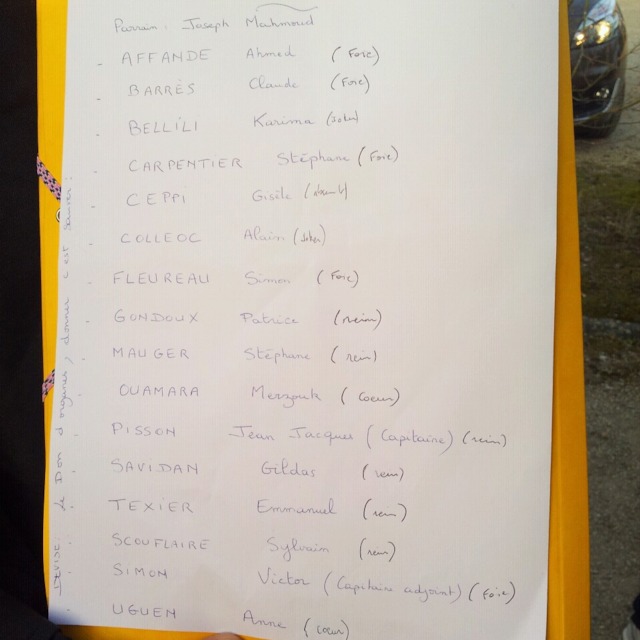 Parrain : Joseph Mahmoud
- AFFANDE Ahmed (Foie)
- BARRÈS Claude (Foie)
- BELLILI Karima
- CARPENTIER Stéphane (Foie)
- CEPPI Gisèle
- COLLEOC Alain
- FLEUREAU Simon (Foie)
- GONDOUX Patrice (rein)
- MAUGER Stéphane (rein)
- OUAMARA Merzouk (Coeur)
- PISSON Jean Jacques (Capitaine) (rein)
- SAVIDAN Gildas (rein)
- TEXIER Emmanuel (rein)
- SCOUFLAIRE Sylvain (rein)
- SIMON Victor (Capitaine adjoint) (Foie)
- UGUEN Anne (coeur)
Devise : Le Don d'organes, donner c'est sauver.